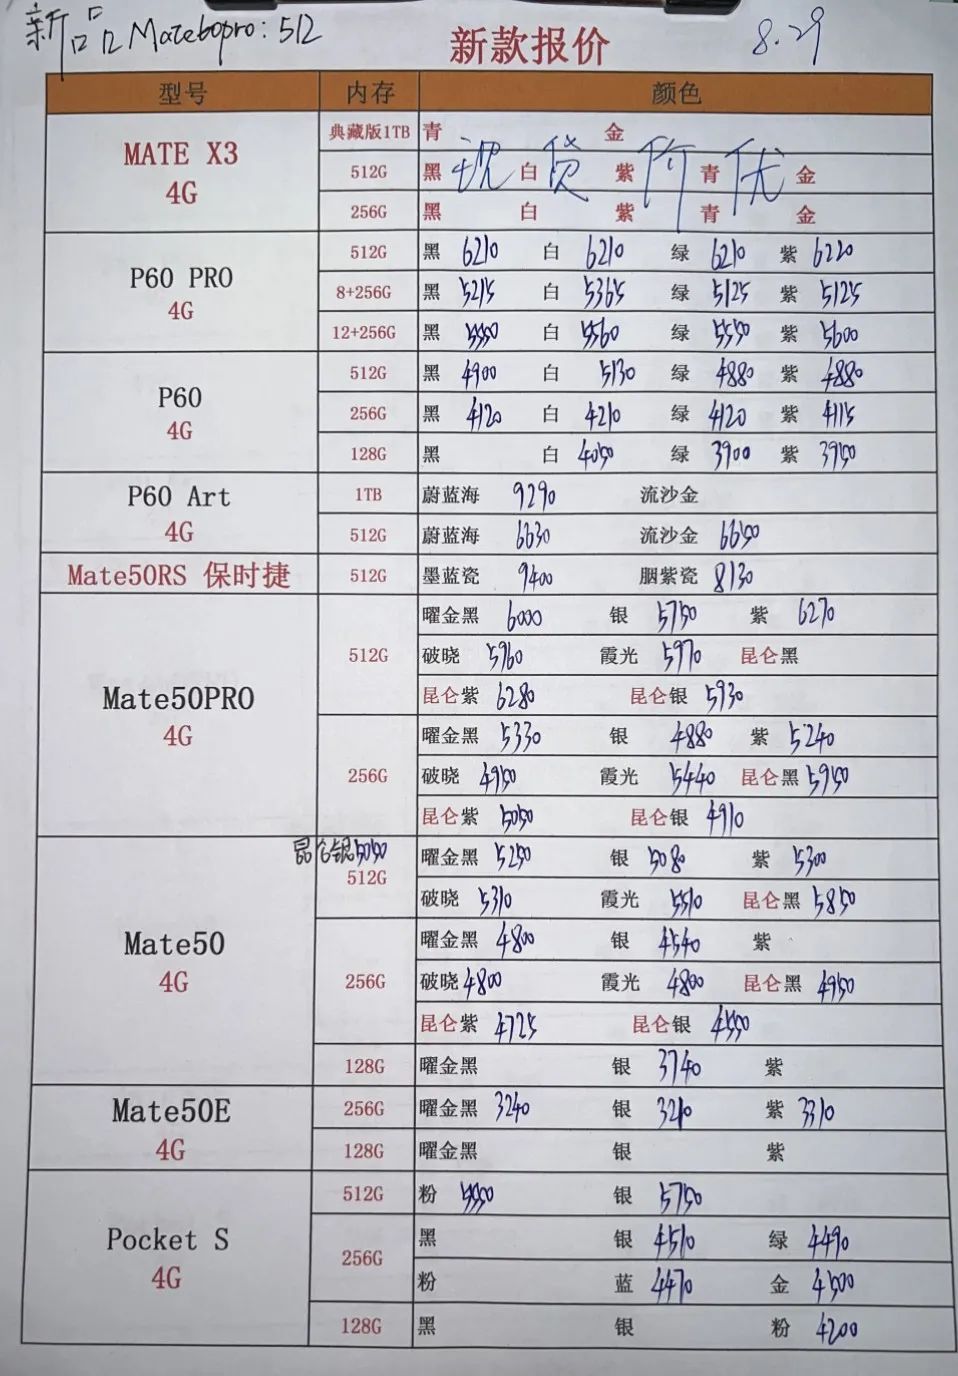 新品 Mate60pro: 512
新款报价 8.29
型号 内存 颜色
MATE X3 4G
典藏版1TB 青 金
512G 黑 白 紫 青 金
现货价优
256G 黑 白 紫 青 金
P60 PRO 4G
512G 黑 6210 白 6210 绿 6210 紫 6220
8+256G 黑 5215 白 5365 绿 5125 紫 5125
12+256G 黑 5550 白 5560 绿 5550 紫 5600
P60 4G
512G 黑 4900 白 5130 绿 4880 紫 4880
256G 黑 4120 白 4210 绿 4120 紫 4115
128G 黑 白 4050 绿 3900 紫 3950
P60 Art 4G
1TB 蔚蓝海 9290 流沙金
512G 蔚蓝海 6630 流沙金 6650
Mate50RS 保时捷 512G 墨蓝瓷 9400 胭紫瓷 8130
Mate50PRO 4G
512G 曜金黑 6000 银 5750 紫 6270
破晓 5960 霞光 5970 昆仑黑
昆仑紫 6280 昆仑银 5930
256G 曜金黑 5330 银 4880 紫 5240
破晓 4950 霞光 5440 昆仑黑 5950
昆仑紫 5050 昆仑银 4910
Mate50 4G
昆仑银5050
512G 曜金黑 5250 银 5080 紫 5300
破晓 5310 霞光 5510 昆仑黑 5850
256G 曜金黑 4800 银 4540 紫
破晓 4800 霞光 4800 昆仑黑 4950
昆仑紫 4725 昆仑银 4550
128G 曜金黑 银 3740 紫
Mate50E 4G
256G 曜金黑 3240 银 3210 紫 3310
128G 曜金黑 银 紫
Pocket S 4G
512G 粉 银 5750
256G 黑 银 4510 绿 4490
粉 蓝 4470 金 4500
128G 黑 银 粉 4200